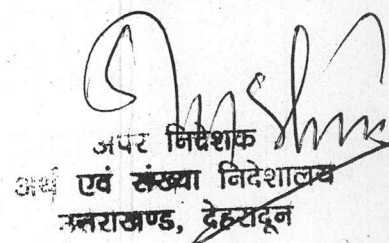 अपर निदेशक
अर्थ एवं संख्या निदेशालय
उत्तराखण्ड, देहरादून